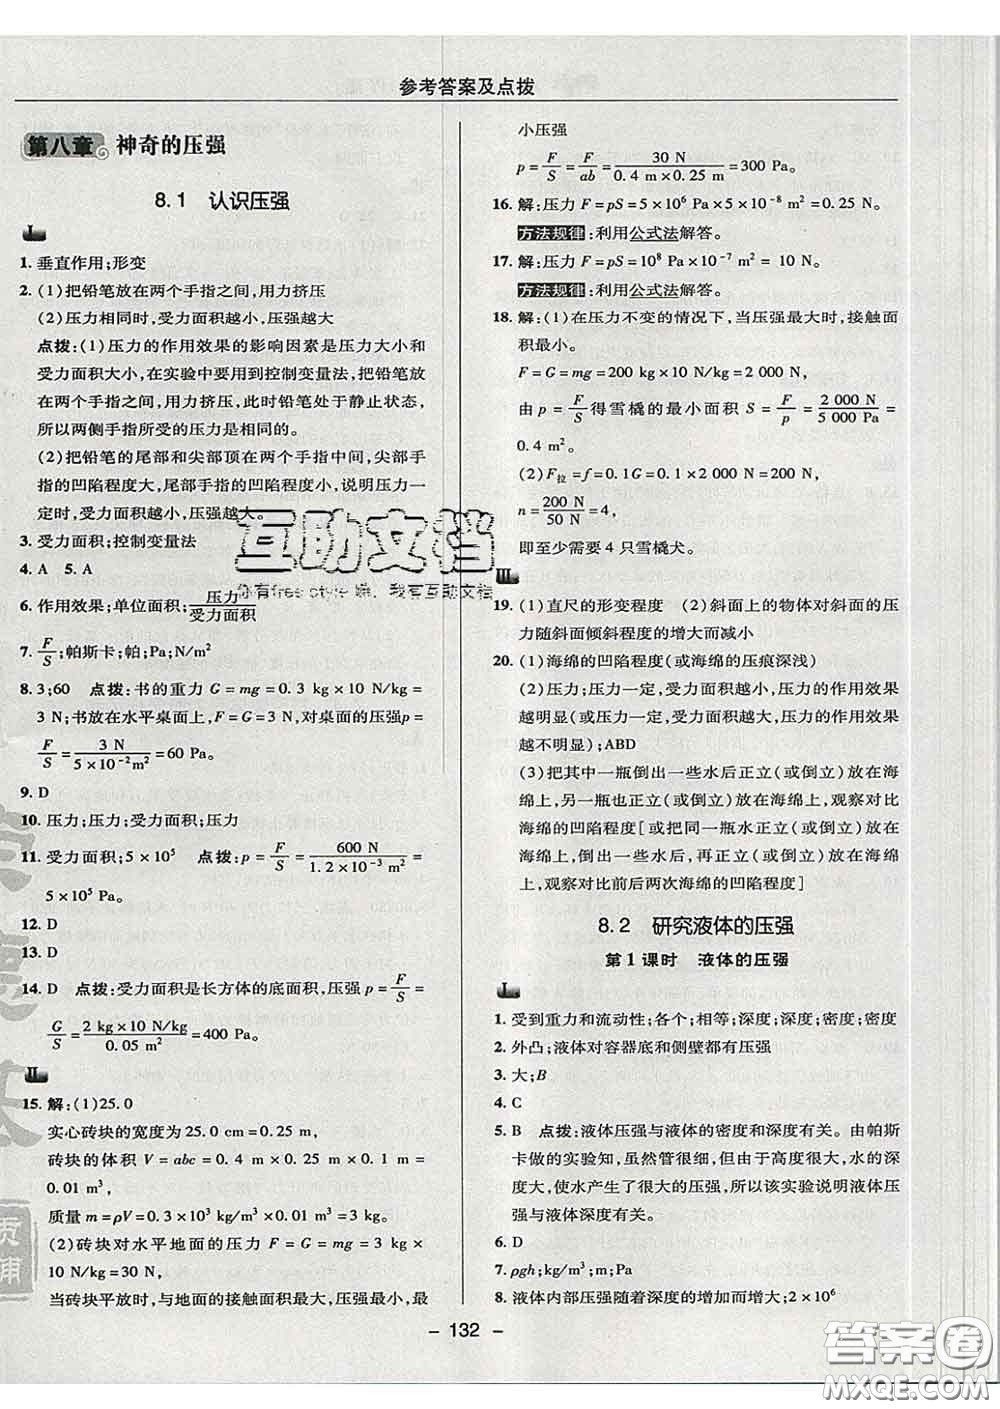 参考答案及点拨
第八章 神奇的压强
8.1 认识压强
Ⅰ
1. 垂直作用;形变
2. (1)把铅笔放在两个手指之间,用力挤压
(2)压力相同时,受力面积越小,压强越大
点拨:(1)压力的作用效果的影响因素是压力大小和
受力面积大小,在实验中要用到控制变量法,把铅笔放
在两个手指之间,用力挤压,此时铅笔处于静止状态,
所以两侧手指所受的压力是相同的。
(2)把铅笔的尾部和尖部顶在两个手指中间,尖部手
指的凹陷程度大,尾部手指的凹陷程度小,说明压力一
定时,受力面积越小,压强越大。
3. 受力面积;控制变量法
4. A 5. A
6. 作用效果;单位面积;压力/受力面积
7. F/S;帕斯卡;帕;Pa;N/m²
8. 3;60 点拨:书的重力 G=mg=0.3 kg×10 N/kg=
3 N;书放在水平桌面上,F=G=3 N,对桌面的压强p=
F/S=3 N/(5×10⁻² m²)=60 Pa。
9. D
10. 压力;压力;受力面积;压力
11. 受力面积;5×10⁵ 点拨:p=F/S=600 N/(1.2×10⁻³ m²)=
5×10⁵ Pa。
12. D
13. D
14. D 点拨:受力面积是长方体的底面积,压强 p=F/S=
G/S=(2 kg×10 N/kg)/(0.05 m²)=400 Pa。
Ⅱ
15. 解:(1)25.0
实心砖块的宽度为25.0 cm=0.25 m,
砖块的体积 V=abc=0.4 m×0.25 m×0.1 m=
0.01 m³,
质量 m=ρV=0.3×10³ kg/m³×0.01 m³=3 kg
(2)砖块对水平地面的压力 F=G=mg=3 kg×
10 N/kg=30 N,
当砖块平放时,与地面的接触面积最大,压强最小,最
小压强
p=F/S=F/ab=30 N/(0.4 m×0.25 m)=300 Pa。
16. 解:压力 F=pS=5×10⁶ Pa×5×10⁻⁸ m²=0.25 N。
方法规律:利用公式法解答。
17. 解:压力 F=pS=10⁸ Pa×10⁻⁷ m²=10 N。
方法规律:利用公式法解答。
18. 解:(1)在压力不变的情况下,当压强最大时,接触面
积最小。
F=G=mg=200 kg×10 N/kg=2 000 N,
由 p=F/S得雪橇的最小面积 S=F/p=2 000 N/5 000 Pa=
0.4 m²
(2)F拉=f=0.1G=0.1×2 000 N=200 N,
n=200 N/50 N=4,
即至少需要 4 只雪橇犬。
Ⅲ
19. (1)直尺的形变程度 (2)斜面上的物体对斜面的压
力随斜面倾斜程度的增大而减小
20. (1)海绵的凹陷程度(或海绵的压痕深浅)
(2)压力;压力一定,受力面积越小,压力的作用效果
越明显(或压力一定,受力面积越大,压力的作用效果
越不明显);ABD
(3)把其中一瓶倒出一些水后正立(或倒立)放在海
绵上,另一瓶也正立(或倒立)放在海绵上,观察对比
海绵的凹陷程度[或把两瓶水正立(或倒立)放在海
绵上,倒出一些水后,再正立(或倒立)放在海绵
上,观察对比前后两次海绵的凹陷程度]
8.2 研究液体的压强
第1课时 液体的压强
Ⅰ
1. 受到重力和流动性;各个;相等;深度;深度;密度;密度
2. 外凸;液体对容器底和侧壁都有压强
3. 大;B
4. C
5. B 点拨:液体压强与液体的密度和深度有关。由帕斯
卡做的实验知,虽然管很细,但由于高度很大,水的深度
很大,使水产生了很大的压强,所以该实验说明液体压
强与液体深度有关。
6. D
7. ρgh;kg/m³;m;Pa
8. 液体内部压强随着深度的增加而增大;2×10⁶
- 132 -
互助文档
你有free style 嘛,我有互助文档
答案圈
MXQE.COM